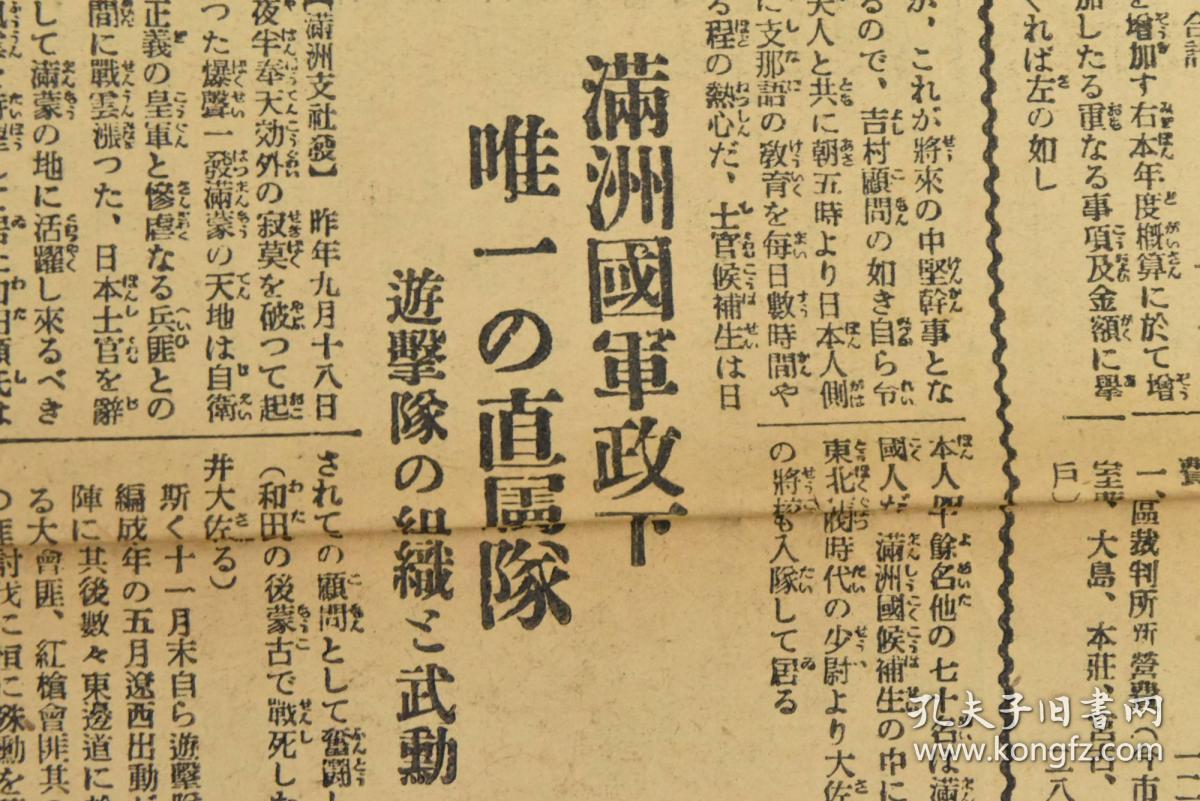 合計
を增加す右本年度概算に於て增
加したる重なる事項及金額に擧
ぐれば左の如し
一、區裁判所所營費(中市
室蘭、大島、本莊、宮古、
戶)
が、これが將來の中堅幹事とな
るので、吉村顧問の如き自ら令
夫人と共に朝五時より日本人側
に支那語の敎育を每日數時間や
る程の熱心だ、士官候補生は日
本人四十餘名他の七十名は滿
國人だ、滿洲國候補生の中に
東北政時代の少尉より大佐
の將校も入隊して居る
滿洲國軍政下
唯一の直屬隊
遊擊隊の組織と武勳
【滿洲支社發】 昨年九月十八日
夜半奉天効外の寂莫を破つて起
つた爆聲一發滿蒙の天地は自衛
正義の皇軍と慘虐なる兵匪との
間に戰雲漲つた、日本士官を辭
して滿蒙の地に活躍し來るべき
されての顧問として奮鬪し
(和田の後蒙古で戰死した
井大佐る)
斯く十一月末自ら遊擊隊
編成年の五月遼西出動
陣に其後數々東邊道に
る大會匪、紅槍會匪其の
の匪討伐に恒に殊勳を
孔夫子旧书网
www.kongfz.com